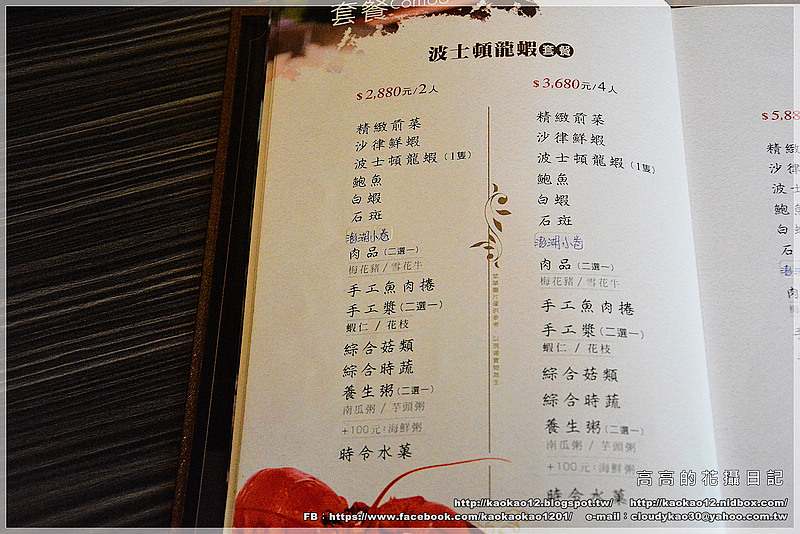 套餐Combo
波士頓龍蝦套餐
$2,880元/2人
精緻前菜
沙律鮮蝦
波士頓龍蝦(1隻)
鮑魚
白蝦
石斑
澎湖小卷
肉品(二選一)
梅花豬/雪花牛
手工魚肉捲
手工漿(二選一)
蝦仁/花枝
綜合菇類
綜合時蔬
養生粥(二選一)
南瓜粥/芋頭粥
+100元:海鮮粥
時令水菓
菜單圖片僅供參考 以現場實物為主
$3,680元/4人
精緻前菜
沙律鮮蝦
波士頓龍蝦(1隻)
鮑魚
白蝦
石斑
澎湖小卷
肉品(二選一)
梅花豬/雪花牛
手工魚肉捲
手工漿(二選一)
蝦仁/花枝
綜合菇類
綜合時蔬
養生粥(二選一)
南瓜粥/芋頭粥
+100元:海鮮粥
時令水菓
$5,88
精
沙
波士
鮑
白
石
澎
高高的花攝日記
http://kaokao12.blogspot.tw/ http://kaokao12.nidbox.com/
FB:https://www.facebook.com/kaokaokao1201/ e-mail:cloudykao30@yahoo.com.tw